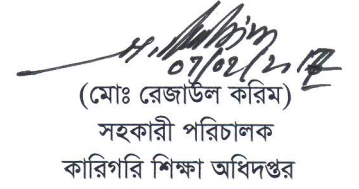 07/02/2017
(মোঃ রেজাউল করিম)
সহকারী পরিচালক
কারিগরি শিক্ষা অধিদপ্তর